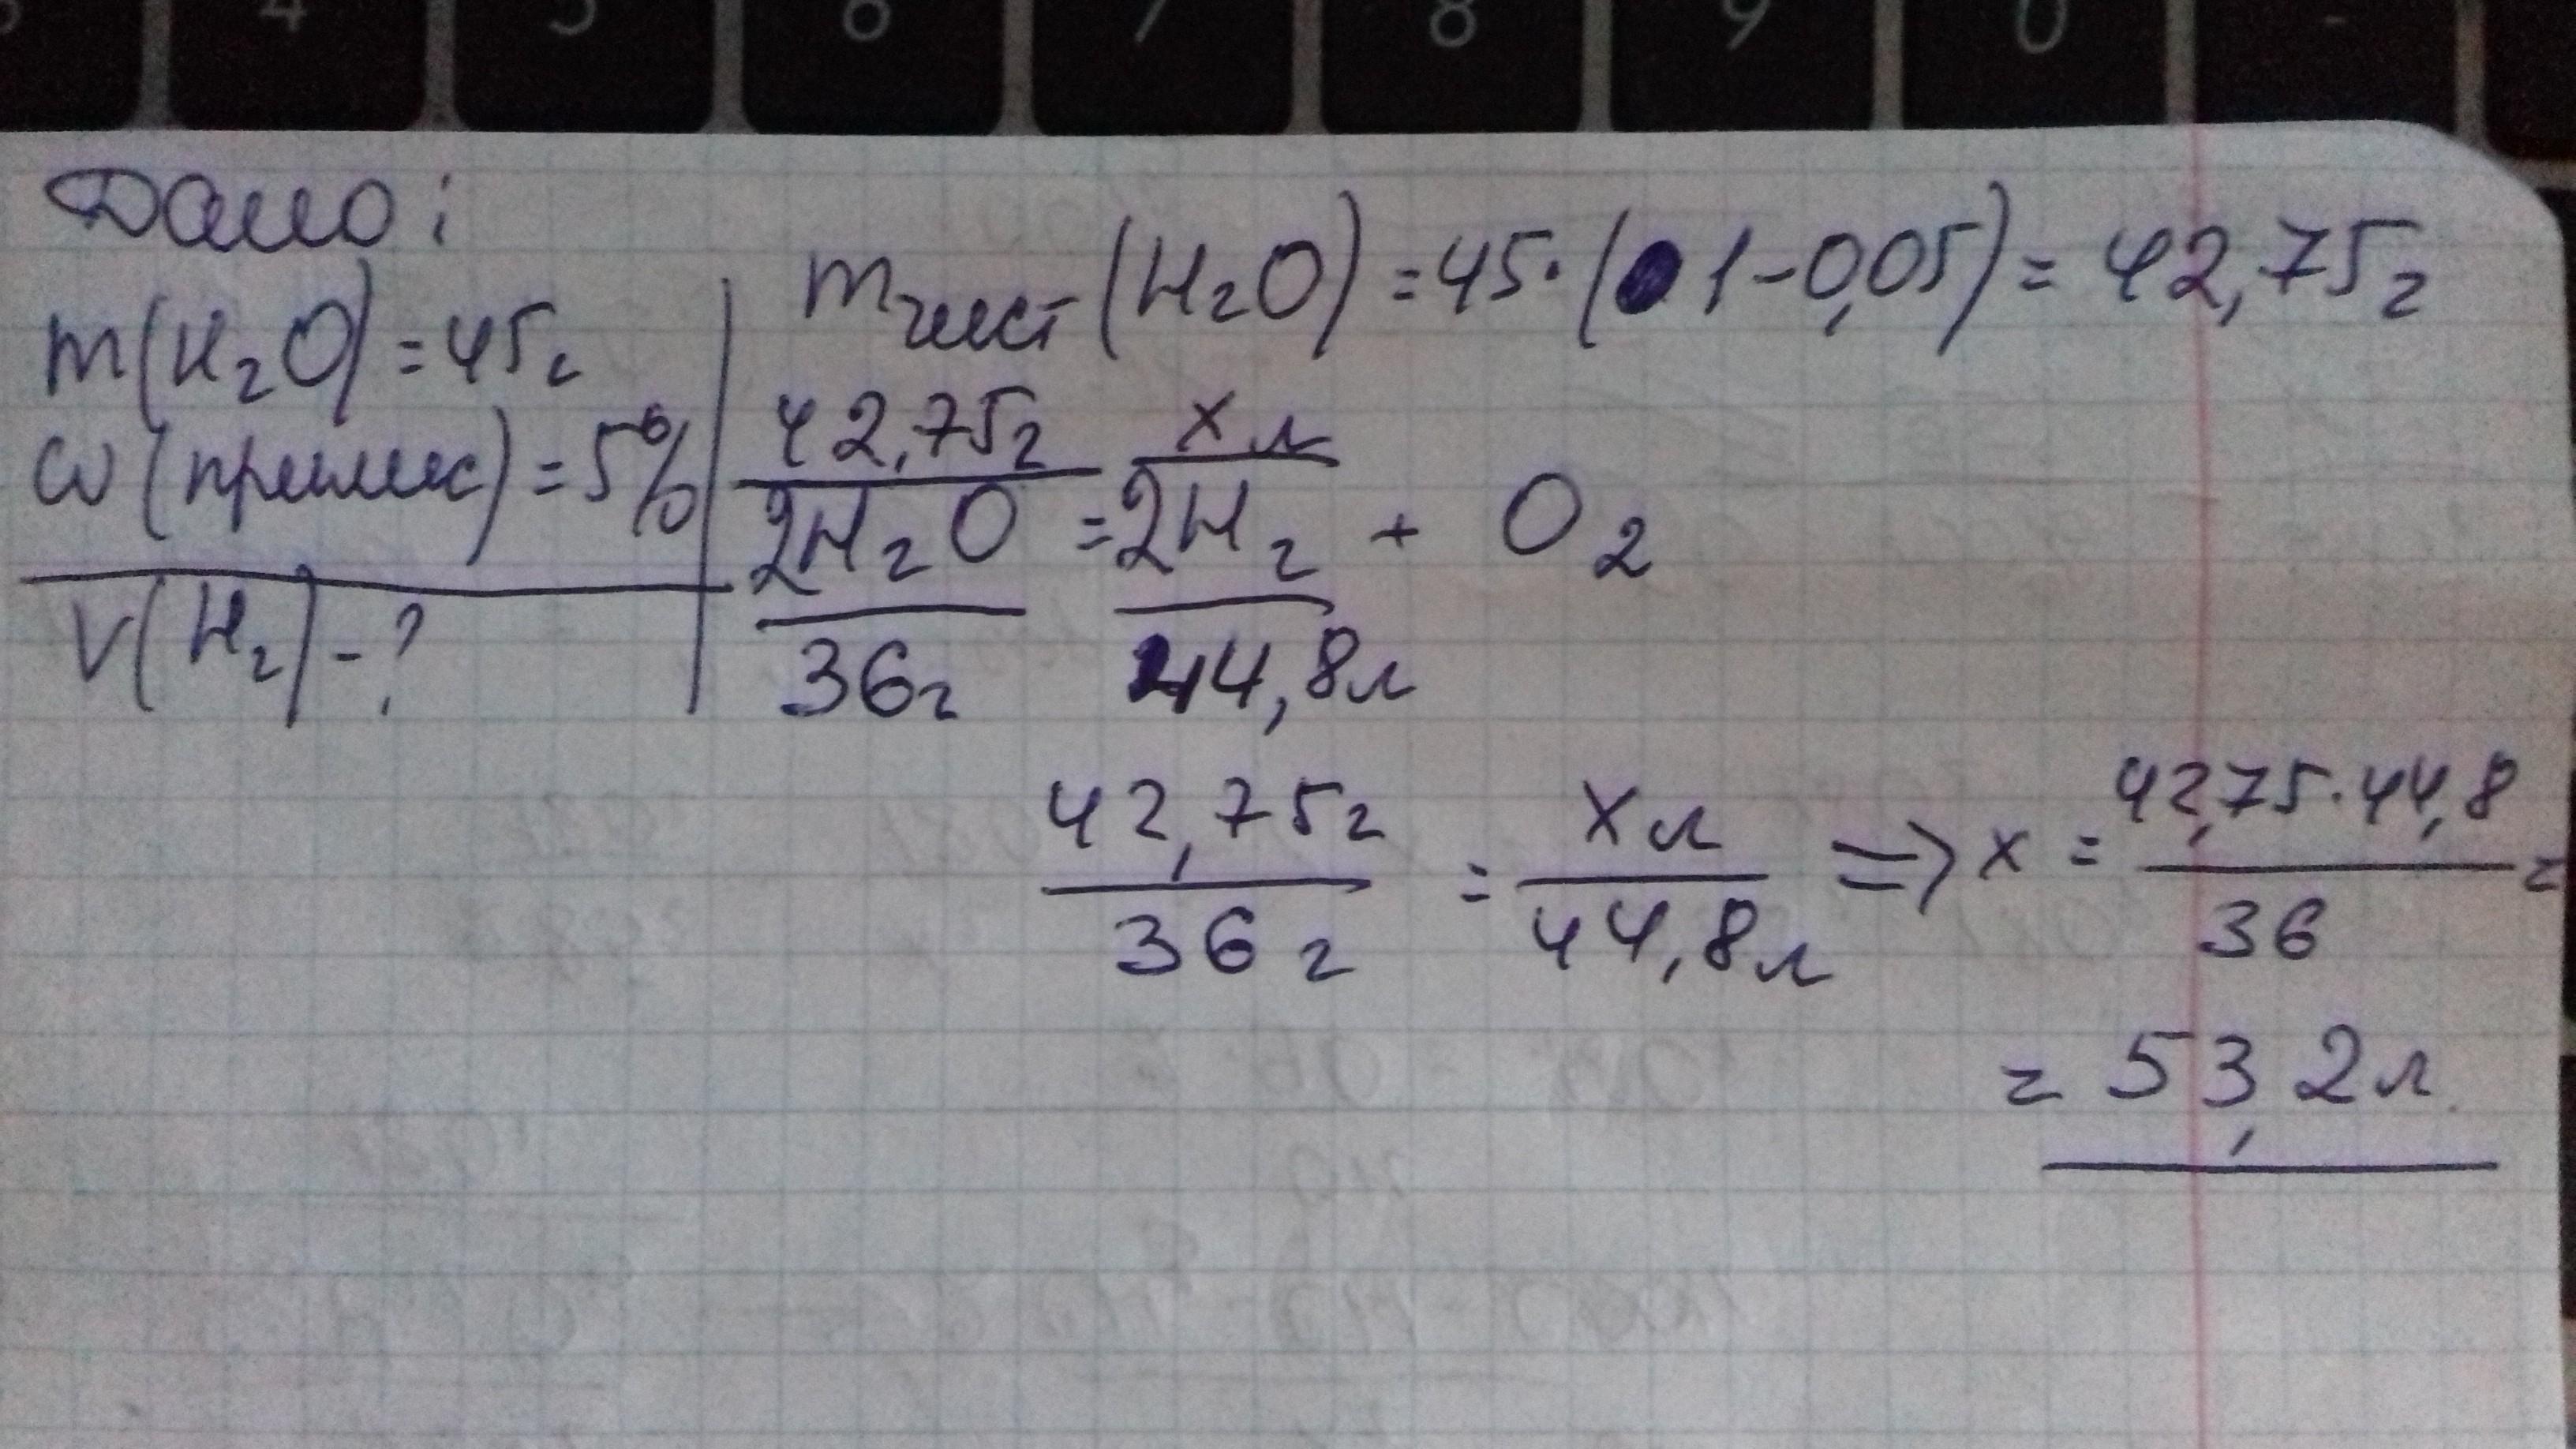 4 5 6 7 8 9 0 -
Дано:
m(H₂O) = 45г
ω(примес) = 5%
V(H₂) - ?
mчист(H₂O) = 45·(1-0,05) = 42,75г
42,75г x л
2H₂O = 2H₂ + O₂
36г 44,8л
42,75г / 36г = x л / 44,8л => x = 42,75·44,8 / 36 =
= 53,2л